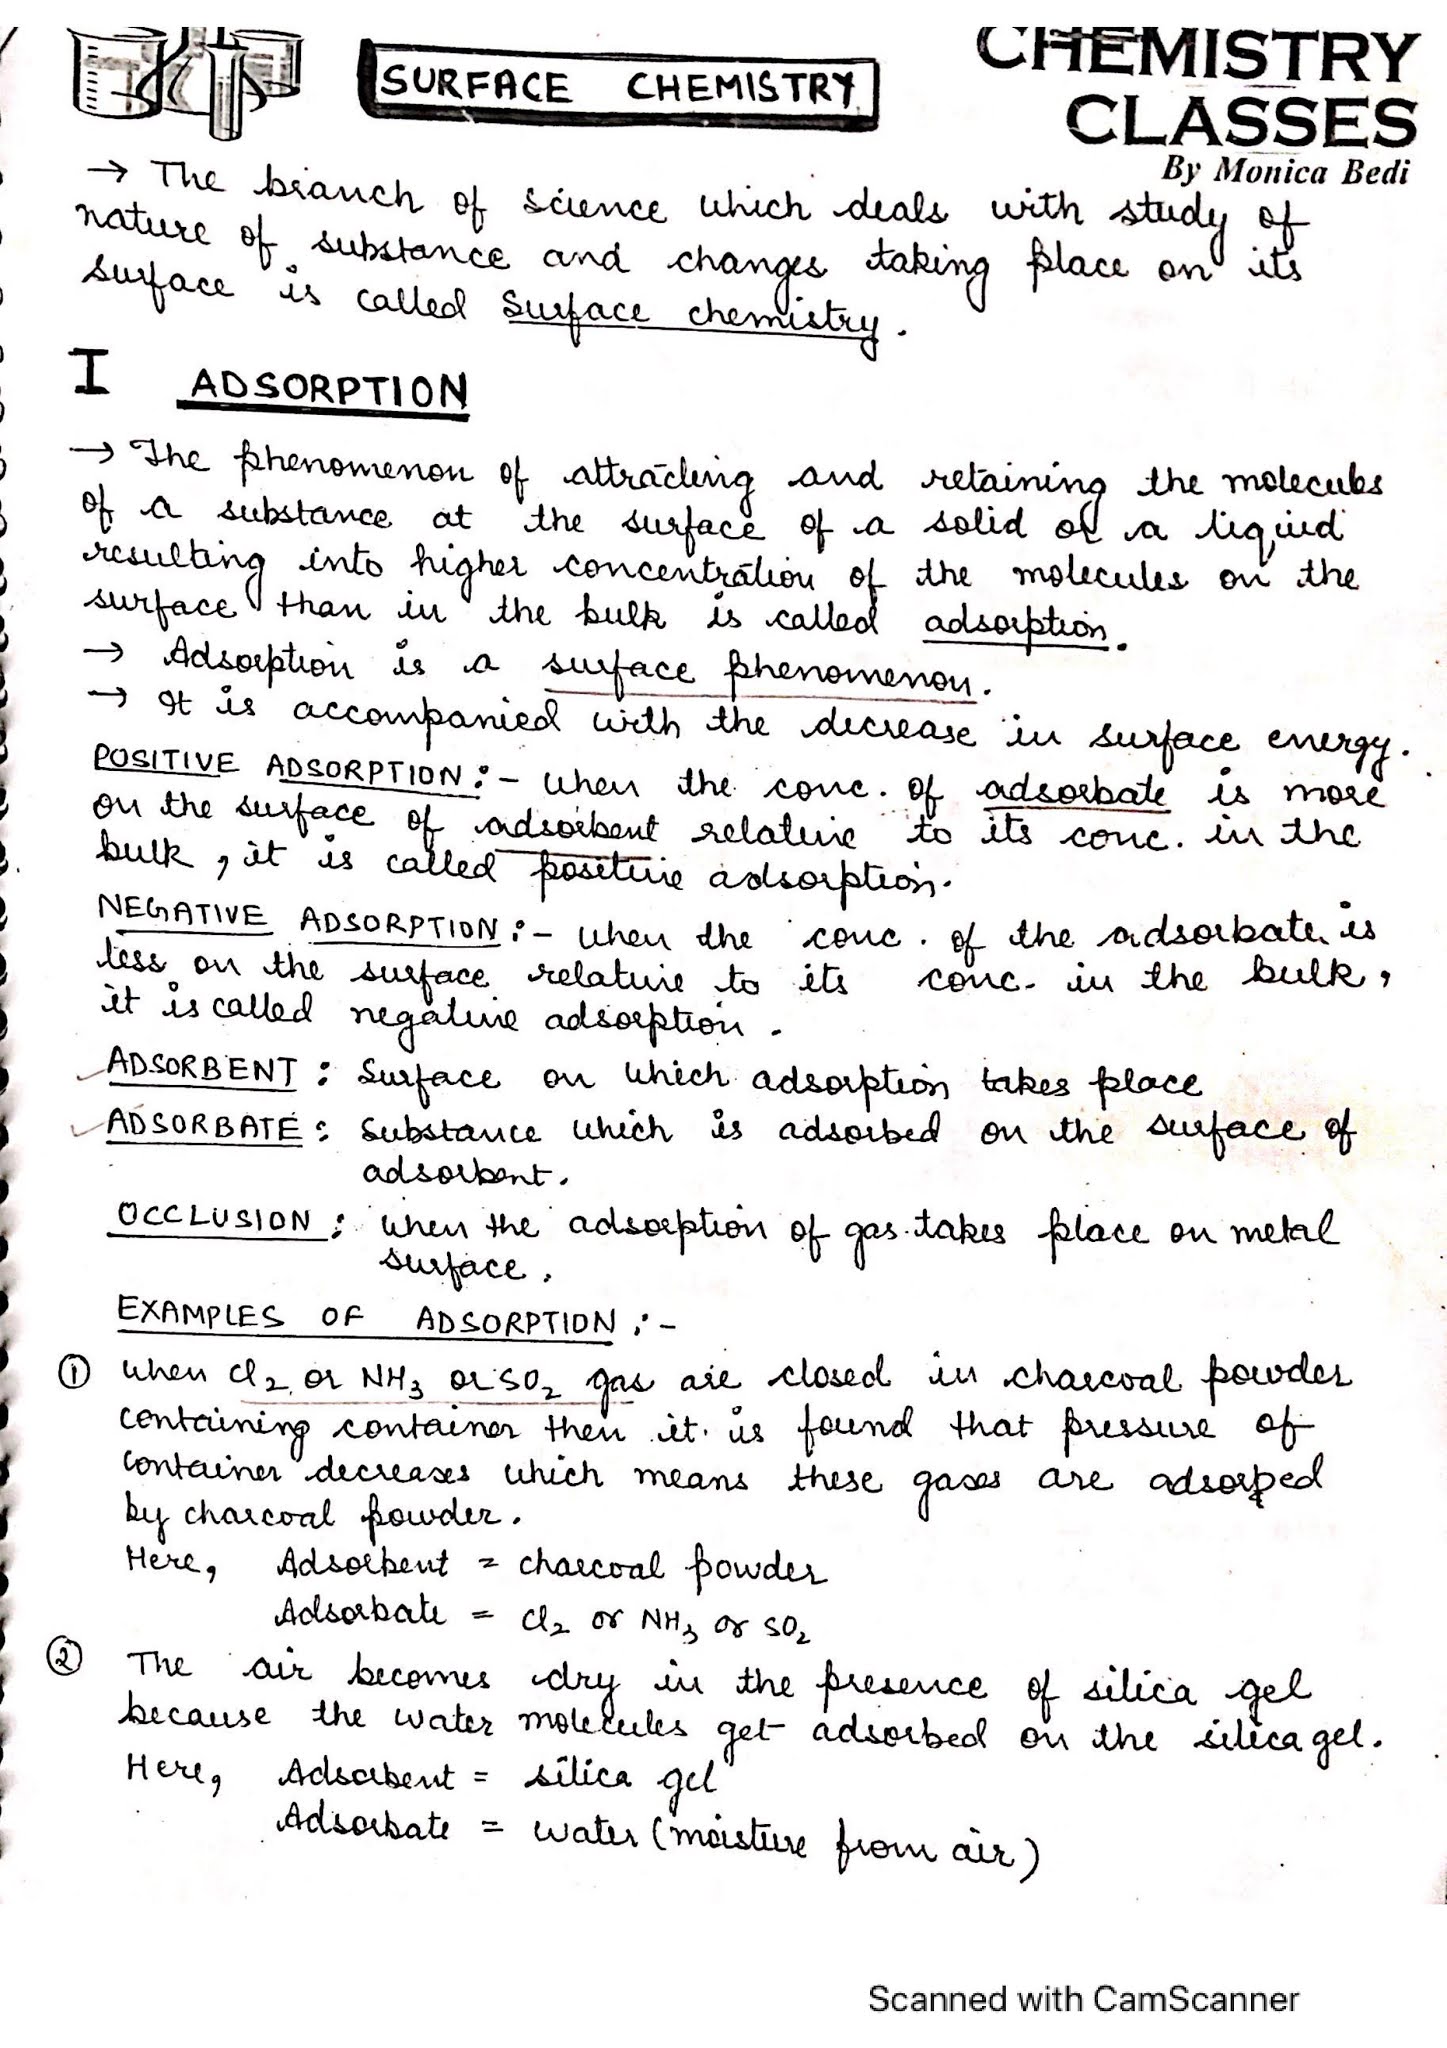 SURFACE CHEMISTRY
CHEMISTRY
CLASSES
By Monica Bedi
→ The branch of science which deals with study of
nature of substance and changes taking place on its
surface is called Surface chemistry.
I ADSORPTION
→ The phenomenon of attracting and retaining the molecules
of a substance at the surface of a solid or a liquid
resulting into higher concentration of the molecules on the
surface than in the bulk is called adsorption.
→ Adsorption is a surface phenomenon.
→ It is accompanied with the decrease in surface energy.
POSITIVE ADSORPTION :- When the conc. of adsorbate is more
on the surface of adsorbent relative to its conc. in the
bulk, it is called positive adsorption.
NEGATIVE ADSORPTION :- When the conc. of the adsorbate is
less on the surface relative to its conc. in the bulk,
it is called negative adsorption.
ADSORBENT : Surface on which adsorption takes place
ADSORBATE : Substance which is adsorbed on the surface of
adsorbent.
OCCLUSION : When the adsorption of gas takes place on metal
surface.
EXAMPLES OF ADSORPTION :-
① When Cl₂ or NH₃ or SO₂ gas are closed in charcoal powder
containing container then it is found that pressure of
container decreases which means these gases are adsorped
by charcoal powder.
Here, Adsorbent = charcoal powder
Adsorbate = Cl₂ or NH₃ or SO₂
② The air becomes dry in the presence of silica gel
because the water molecules get adsorbed on the silica gel.
Here, Adsorbent = silica gel
Adsorbate = water (moisture from air)
Scanned with CamScanner